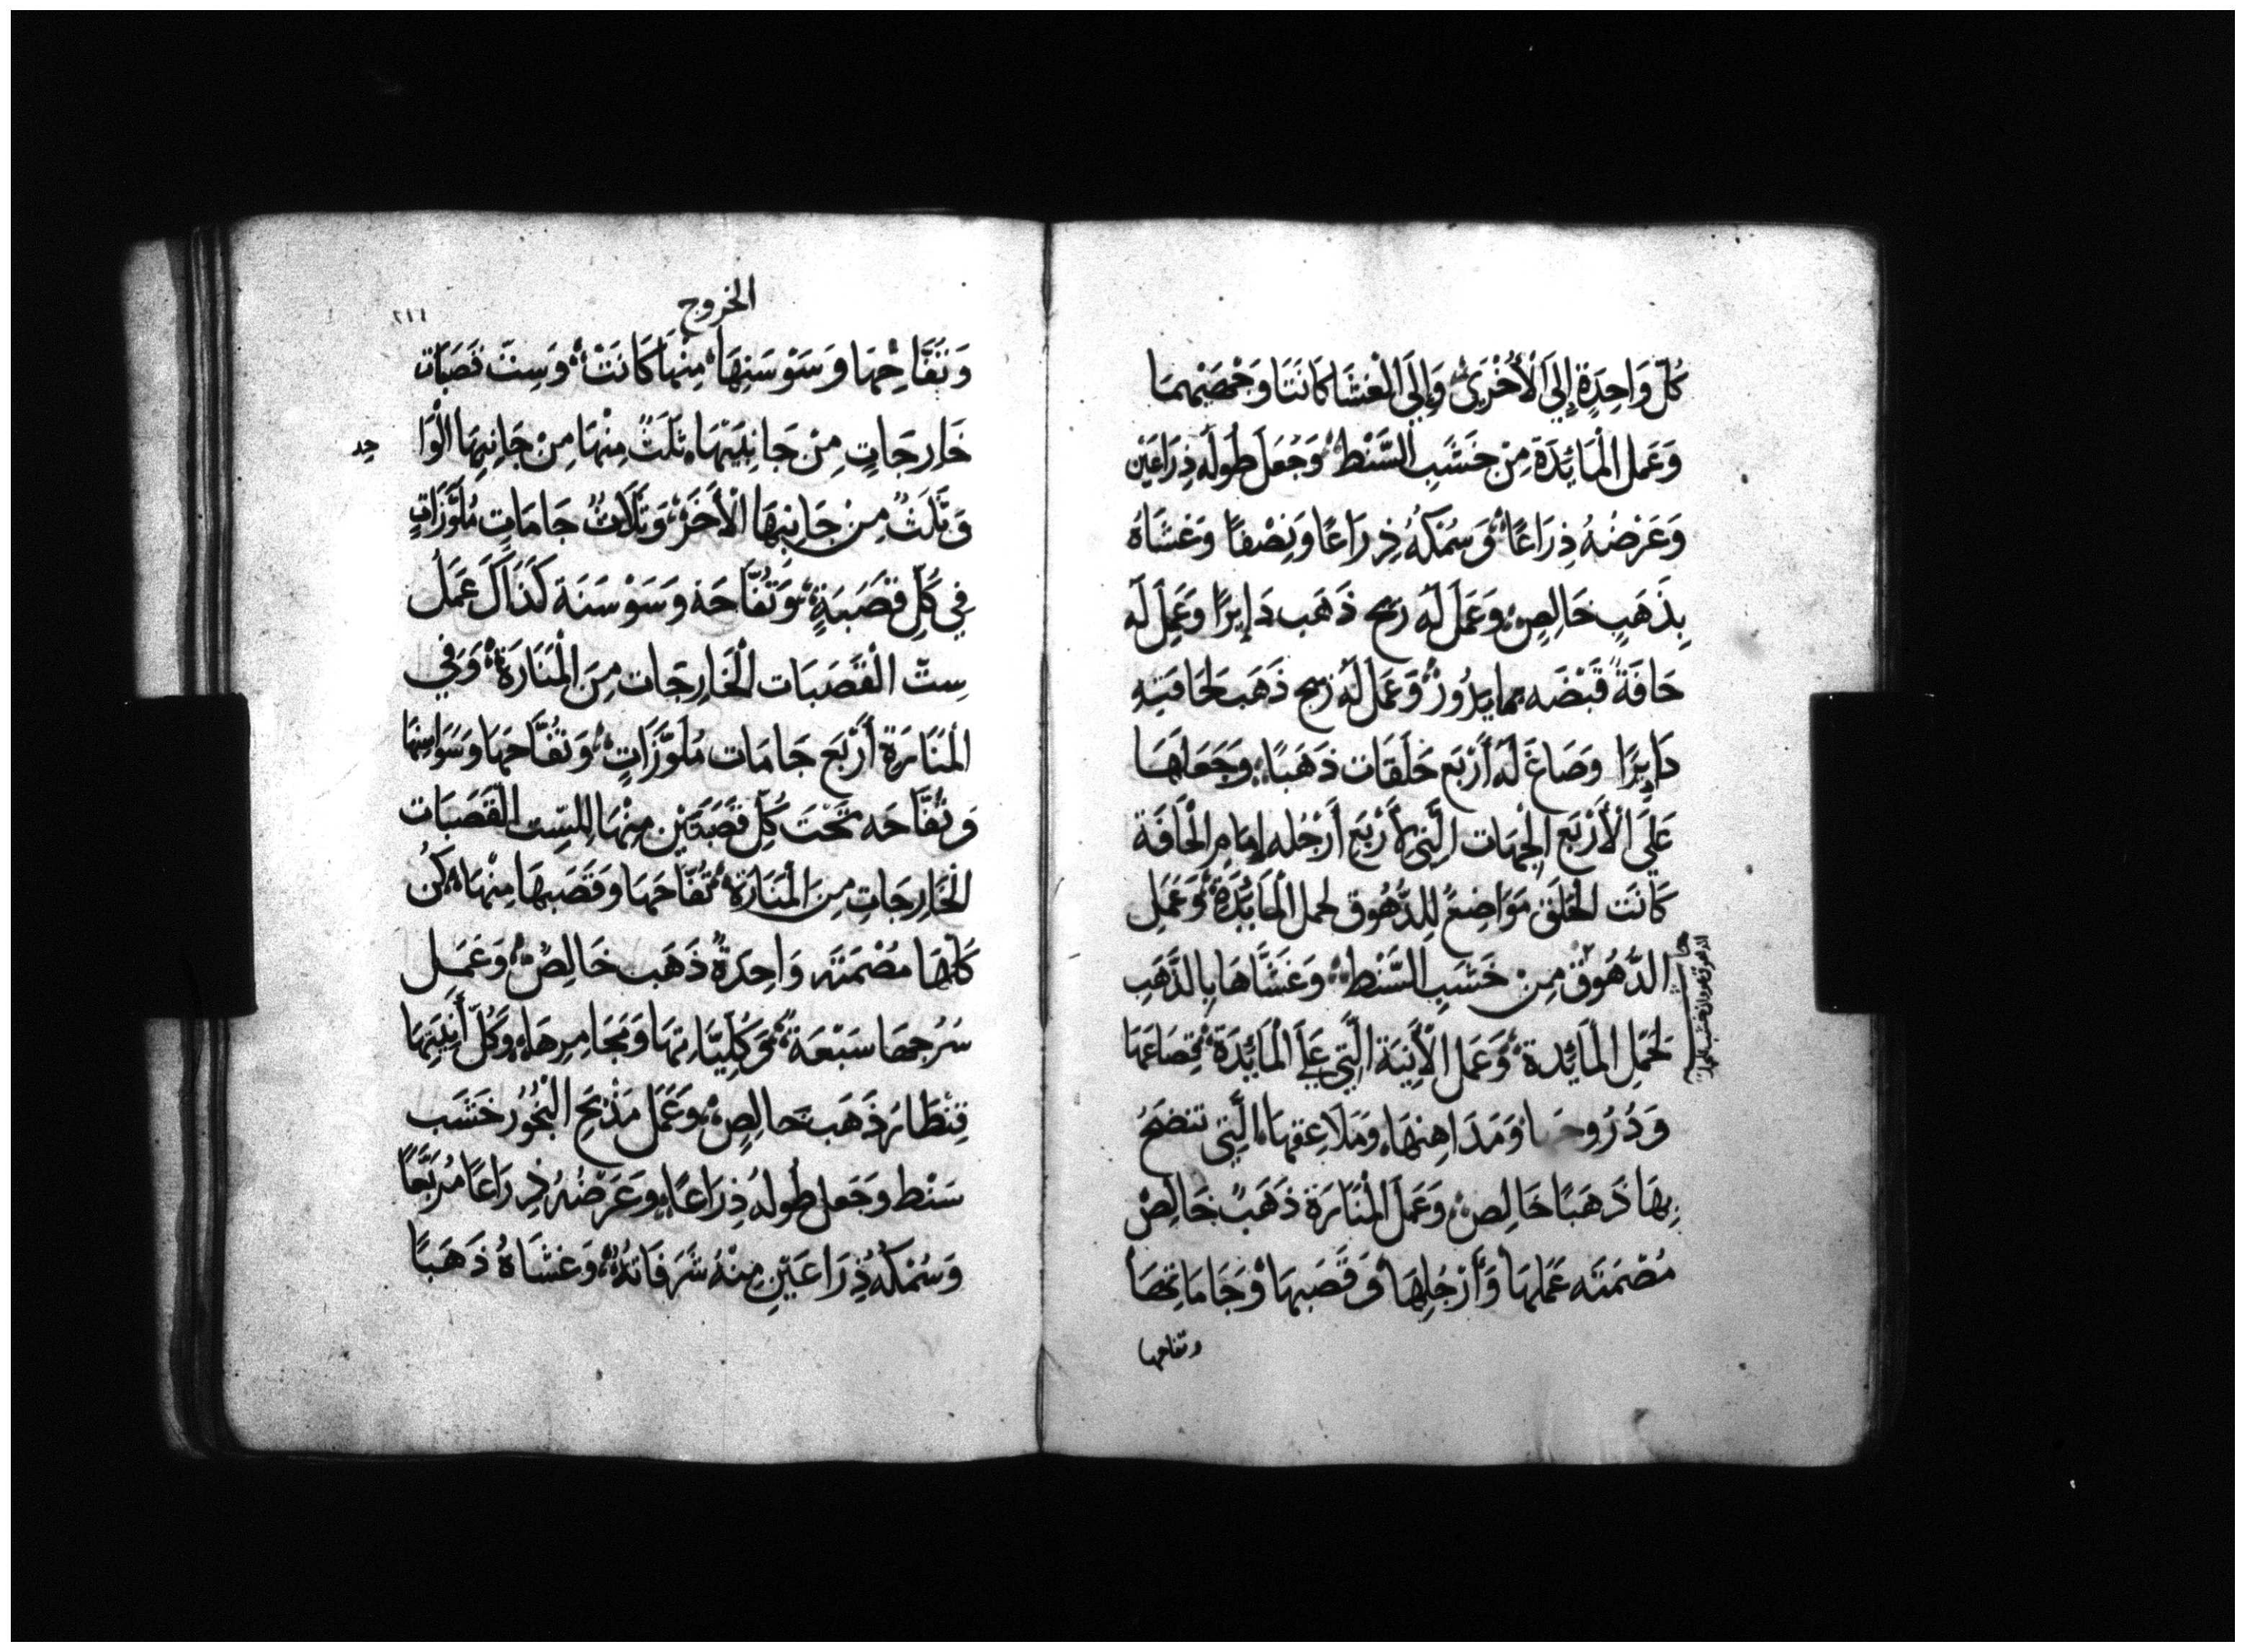 كُلّ وَاحِدَةٍ إِلَي الْأُخْرَيْ وَإِلَي الْغشَا كَانَتَا وَجْهَيْهِمَا
وَعَمل الْمَايُدَةَ مِنْ خَشَبِ السَّنْط وَجُعَلَ طُولَه ذِرَاعَيْن
وَعَرْضُهُ ذِرَاعًا وَسُمْكهُ ذِرَاعًا وَنِصْفًا وَغشَاهُ
بِذَهَبٍ خَالِصٍ وَعَمَلَ لَهُ زيح ذَهَب دَايرًا وَعَمِلَ لَه
حَافَةً قَبْضَه بما يدُورُ وَعَمَل لَهُ زيح ذَهَب لحَافَتِهِ
دَايرًا وَصَاغَ لَه أَرْبَع حَلَقَات ذَهَبًا وَجَعَلَهَا
عَلَى الْأَرْبَع الجِهَات الَّتِي لأَرْبَع أَرْجُله إمَامِ الْحَافَة
كَانَت الْحلَق مَوَاضِعَ لِلدُّهُوق لحمل الْمَايُدَة وَعَمَل
الدُّهُوق مِنْ خَشَبِ السَّنْط وَغَشَّاهَا بِالذَّهَبِ
لحَمْلِ الْمَايُدة وَعَمَل الْأَنِيَة الَّتِي عَلَى الْمَايُدَة قِصَاعَهَا
وَدُرُوجها وَمَدَاهِنهَا وَمَلَاعِقهَا الَّتِي تنضحُ
بِهَا ذَهَبًا خَالِص وَعَمَلَ الْمَنَارَة ذَهَبًا خَالِصْ
مُصْمَتَه عَمَلهَا وَأَرْجُلِهَا وَقَصَبهَا وَجَامَاتهَا
وتفاحها
الخروج
وَتفَّاحِهَا وَسَوْسَنِهَا مِنْهَا كَانَتْ وَسِتَ قَصَبَات
خَارِجَاتٍ مِنْ جَانِبَيْهَا ثَلَثٌ مِنْهَا مِنْ جَانِبِهَا الْوَا
حِد
وَثَلَثٌ مِنْ جَانِبِهَا الْأَخَر وَثَلَاثُ جَامَاتٍ مُلَوَّزَاتٍ
فِي كُلِّ قَصَبَةٍ وَتُفَّاحَة وَسَوْسَنَة كَذَاكَ عَمَلُ
سِتّ الْقَصَبَات الْخَارِجَات مِنَ الْمَنَارَة وَفِي
الْمَنَارَة أَرْبَع جَامَات مُلَوَّزَاتٍ وَتُفَّاحهَا وَسَوَاسِنهَا
وَتُفَّاحَه تَحْتَ كُلّ قَصَبَتَيْن مِنْهَا لِلسِّت القَصَبَات
الْخَارِجَاتِ مِنَ الْمَنَارَة تُفَّاحهَا وَقَصَبهَا مِنْهَا كُنّ
كُلّهَا مصْمَتَه وَاحِدَةً ذَهَب خَالِصْ وَعَمِل
سُرُجهَا سَبْعَة وَكُلبَّاتهَا وَمَجَامِرِهَا وَكُلّ أَنِيَتهَا
قِنْطَارُ ذَهَب خَالِصٍ وَعَمَل مَذْبَحِ الْبَخُور خَشَب
سَنْط وَجَعل طُولهُ ذِرَاعًا وَعَرْضُهُ ذِرَاعًا مُرَبَّعًا
وَسُمْكَه ذِرَاعَيْنِ مِنْهُ شُرَفَاتُهُ وَغشَاهُ ذَهَبًا